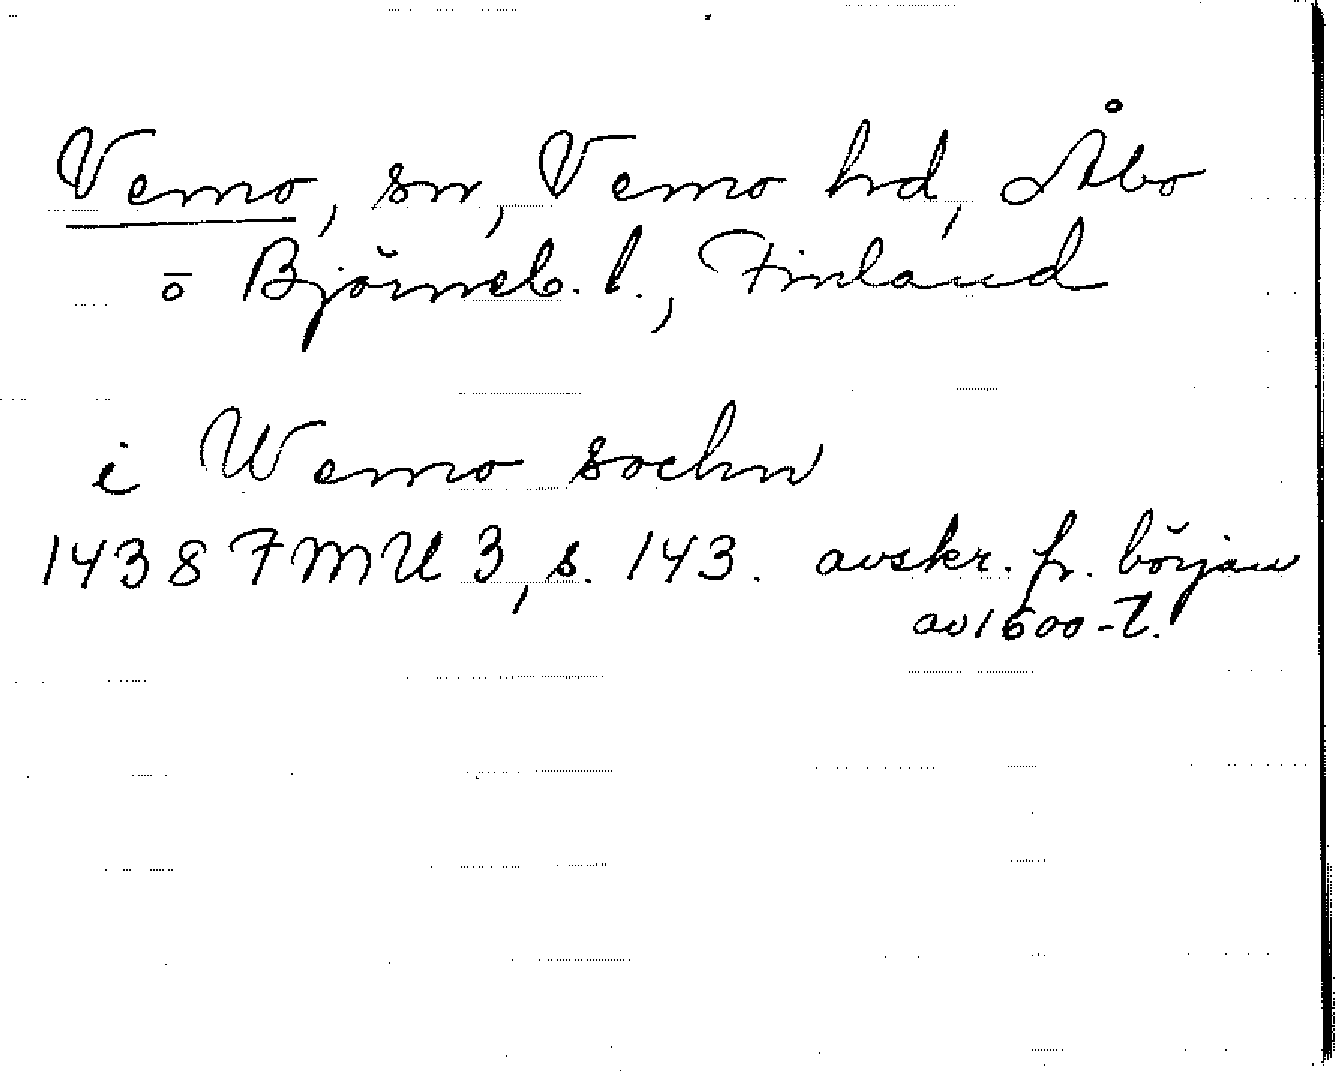 Vemo, sn, Vemo hd, Åbo
o Björneb. l., Finland
i Wemo sochn
1438 FMU 3, s. 143. avskr. fr. början
av 1600-t.